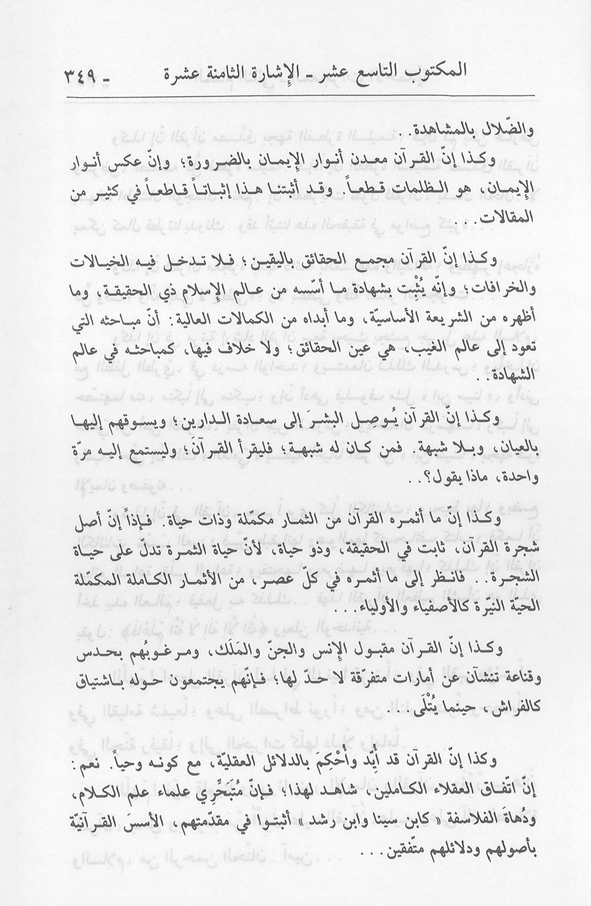 المكتوب التاسع عشر ـ الإشارة الثامنة عشرة ـ ٣٤٩
والضّلال بالمشاهدة..
وكذا إنّ القرآن معدن أنوار الإيمان بالضرورة؛ وإنّ عكس أنوار
الإيمان، هو الظلمات قطعاً. وقد أثبتنا هذا إثباتاً قاطعاً في كثير من
المقالات...
وكذا إنّ القرآن مجمع الحقائق باليقين؛ فلا تدخل فيه الخيالات
والخرافات؛ وإنّه يُثْبِت بشهادة ما أسّسه من عالم الإسلام ذي الحقيقة، وما
أظهره من الشريعة الأساسيّة، وما أبداه من الكمالات العالية: أنّ مباحثه التي
تعود إلى عالم الغيب، هي عين الحقائق؛ ولا خلاف فيها، كمباحثه في عالم
الشهادة..
وكذا إنّ القرآن يُوصِل البشرَ إلى سعادة الدارين؛ ويسوقهم إليها
بالعيان، وبلا شبهة. فمن كان له شبهة؛ فليقرأ القرآنَ؛ وليستمع إليه مرّة
واحدة، ماذا يقول؟..
وكذا إنّ ما أثمره القرآن من الثمار مكمّلة وذات حياة. فإذاً إنّ أصل
شجرة القرآن، ثابت في الحقيقة، وذو حياة، لأنّ حياة الثمرة تدلّ على حياة
الشجرة.. فانظر إلى ما أثمره في كلّ عصر، من الأثمار الكاملة المكمّلة
الحيّة النيّرة كالأصفياء والأولياء...
وكذا إنّ القرآن مقبول الإنس والجنّ والمَلَك، ومرغوبُهم بحدس
وقناعة تنشآن عن أمارات متفرّقة لا حدّ لها؛ فإنّهم يجتمعون حوله باشتياق
كالفراش، حينما يُتْلَى...
وكذا إنّ القرآن قد أيّد وأُحْكِمَ بالدلائل العقليّة، مع كونه وحياً. نعم:
إنّ اتّفاق العقلاء الكاملين، شاهد لهذا؛ فإنّ مُتَبَحِّرِي علماء علم الكلام،
ودُهاةَ الفلاسفة «كابن سينا وابن رشد» أثبتوا في مقدّمتهم، الأسسَ القرآنيّة
بأصولهم ودلائلهم متّفقين...